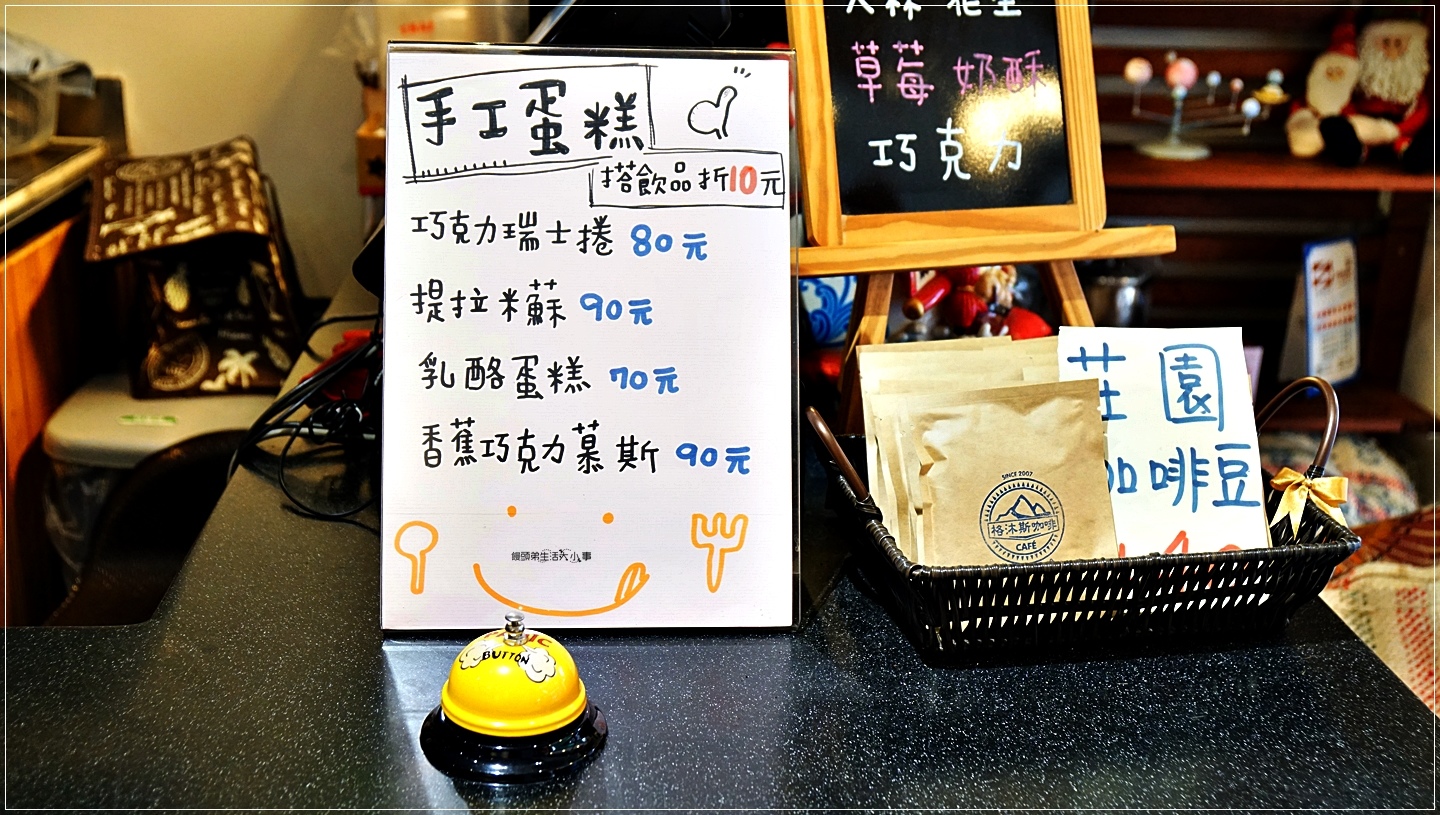 手工蛋糕
搭飲品折10元
巧克力瑞士捲 80元
提拉米蘇 90元
乳酪蛋糕 70元
香蕉巧克力慕斯 90元
饅頭弟生活大小事
BUTTON
草莓 奶酥
巧克力
SINCE 2007
格沐斯咖啡
CAFÉ
莊園
咖啡豆